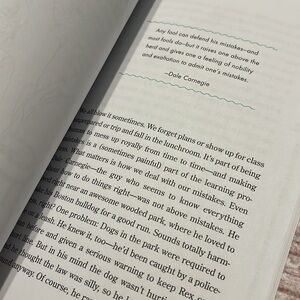 Any fool can defend his mistakes—and
most fools do—but it raises one above the
herd and gives one a feeling of nobility
and exaltation to admit one's mistakes.
—Dale Carnegie
all blow it sometimes. We forget plans or show up for class
or trip and fall in the lunchroom. It's part of being
human to mess up royally from time to time—and making
is a (sometimes painful) part of the learning pro-
What matters is how we deal with our mistakes. Even
Carnegie—the guy who seems to know everything
how to do things right—was not above mistakes. He
near an awesome wooded park, where he loved to
his Boston bulldog for a good run. Sounds totally harm-
right? One problem: Dogs in the park were required to
a leash. He knew it, too—he'd been caught by a police-
before and given a serious warning to keep Rex on a
But in his mind the dog wasn't
thought the law was silly, so he
anyway. Of course, he